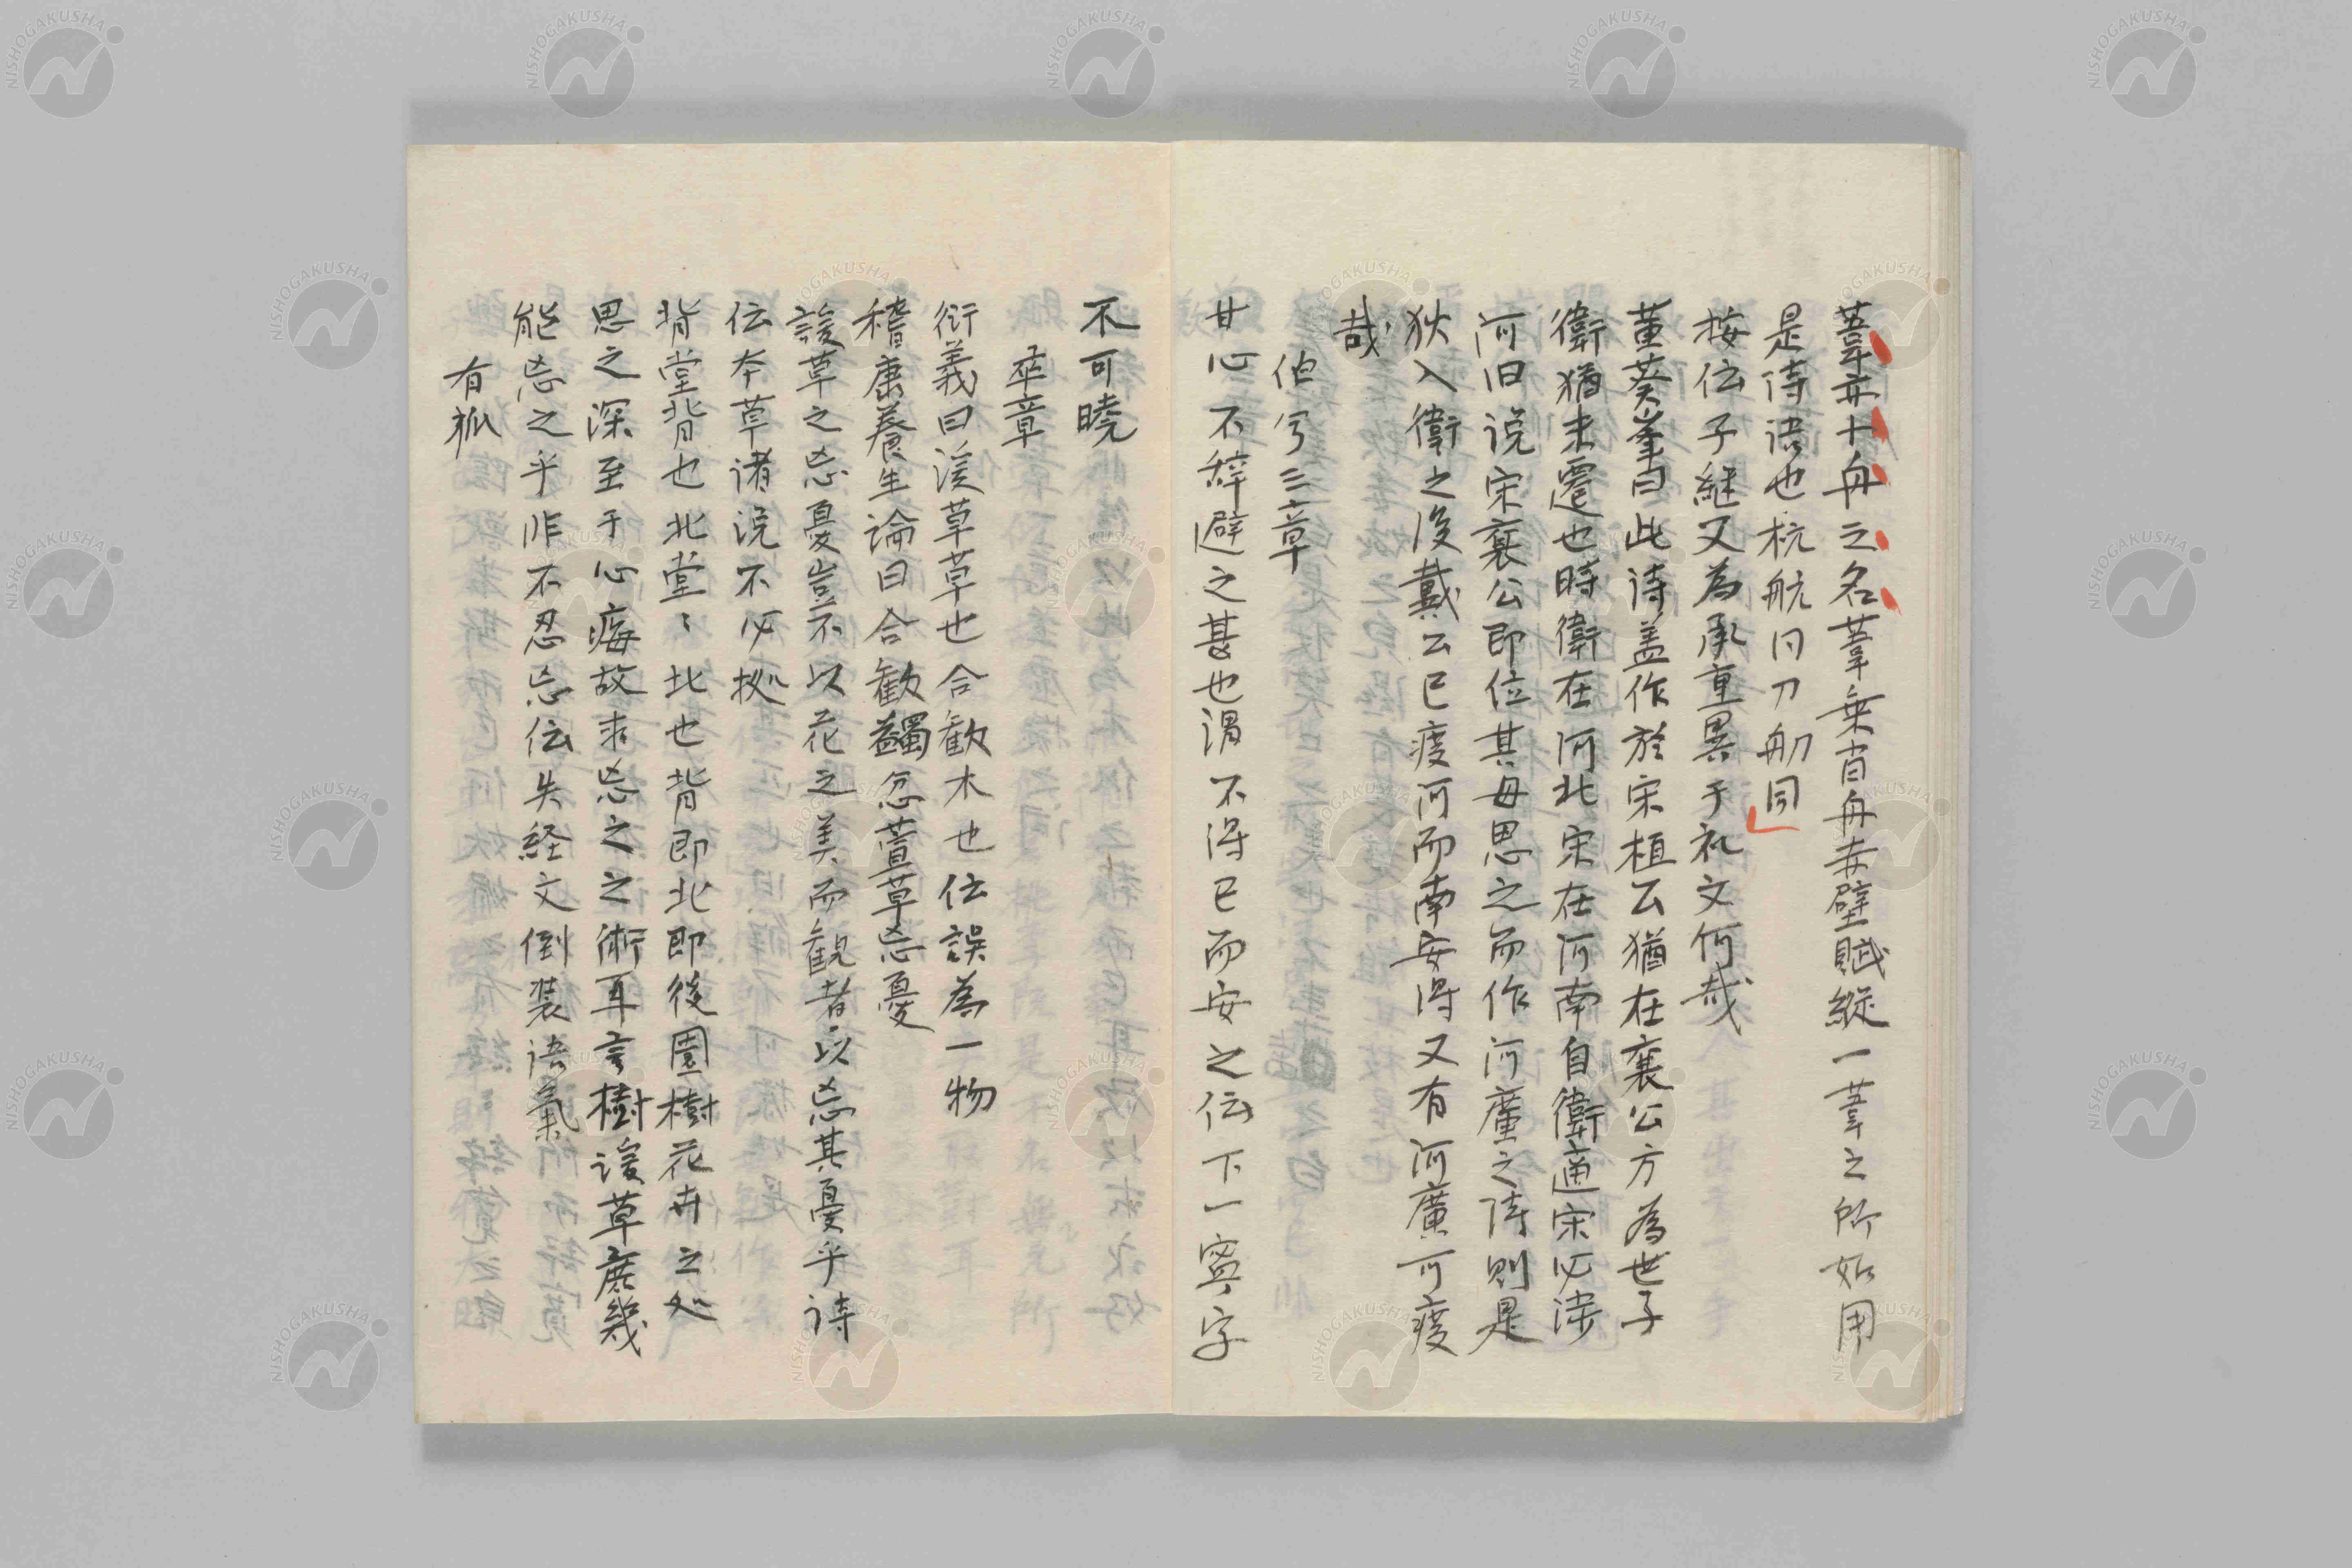 葦亦十舟之名葦乗音舟赤壁賦縦一葦之所如用
是詩語也杭航同刀舠同
按伝子継又為承重異于礼文何哉
董葵峯曰此詩盖作於宋植云猶在襄公方為世子
衛猶未遷也時衛在河北宋在河南自衛適宋必渉
河旧説宋襄公即位其母思之而作河廣之詩則是
狄入衛之後戴公已渡河而南安得又有河廣可渡
哉
伯兮三章
甘心不辞避之甚也謂不得已而安之伝下一寧字
不可暁
卒章
衍義曰諼草草也合歓木也伝誤為一物
稽康養生論曰合歓蠲忿萱草忘憂
諼草之忘憂豈不以花之美而観者以忘其憂乎詩
伝本草諸説不必拠
背堂背也北堂〻北也背即北即後園樹花卉之処
思之深至于心痗故求忘之之術耳言樹諼草庶幾
能忘之乎非不忍忘伝失経文倒装語氣
有狐
NISHOGAKUSHA